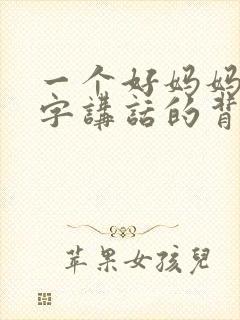 一个好妈妈
字講話的背
苹果女孩兒